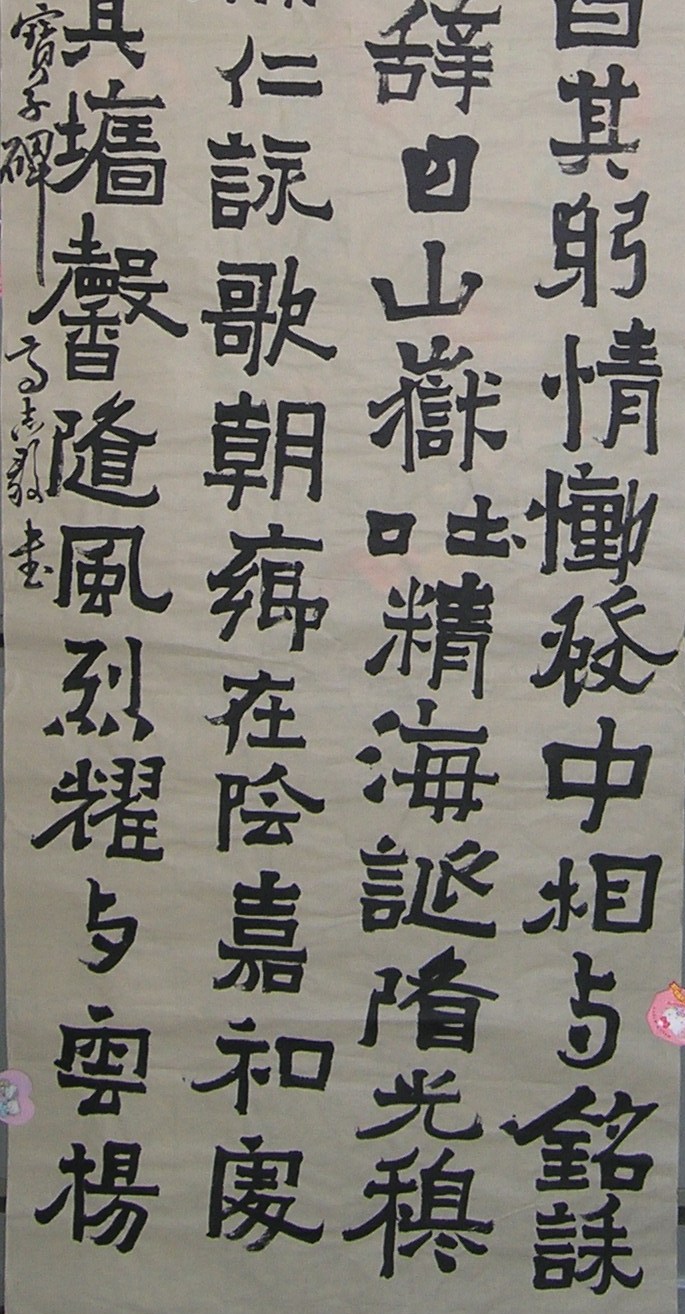 百其躬情慟發中相与銘誄
辞曰山嶽吐精海誕陼光穆
仁詠歌朝鄉在陰嘉和處
其墻馨隨風烈耀与雲楊
寶子碑 高志 书